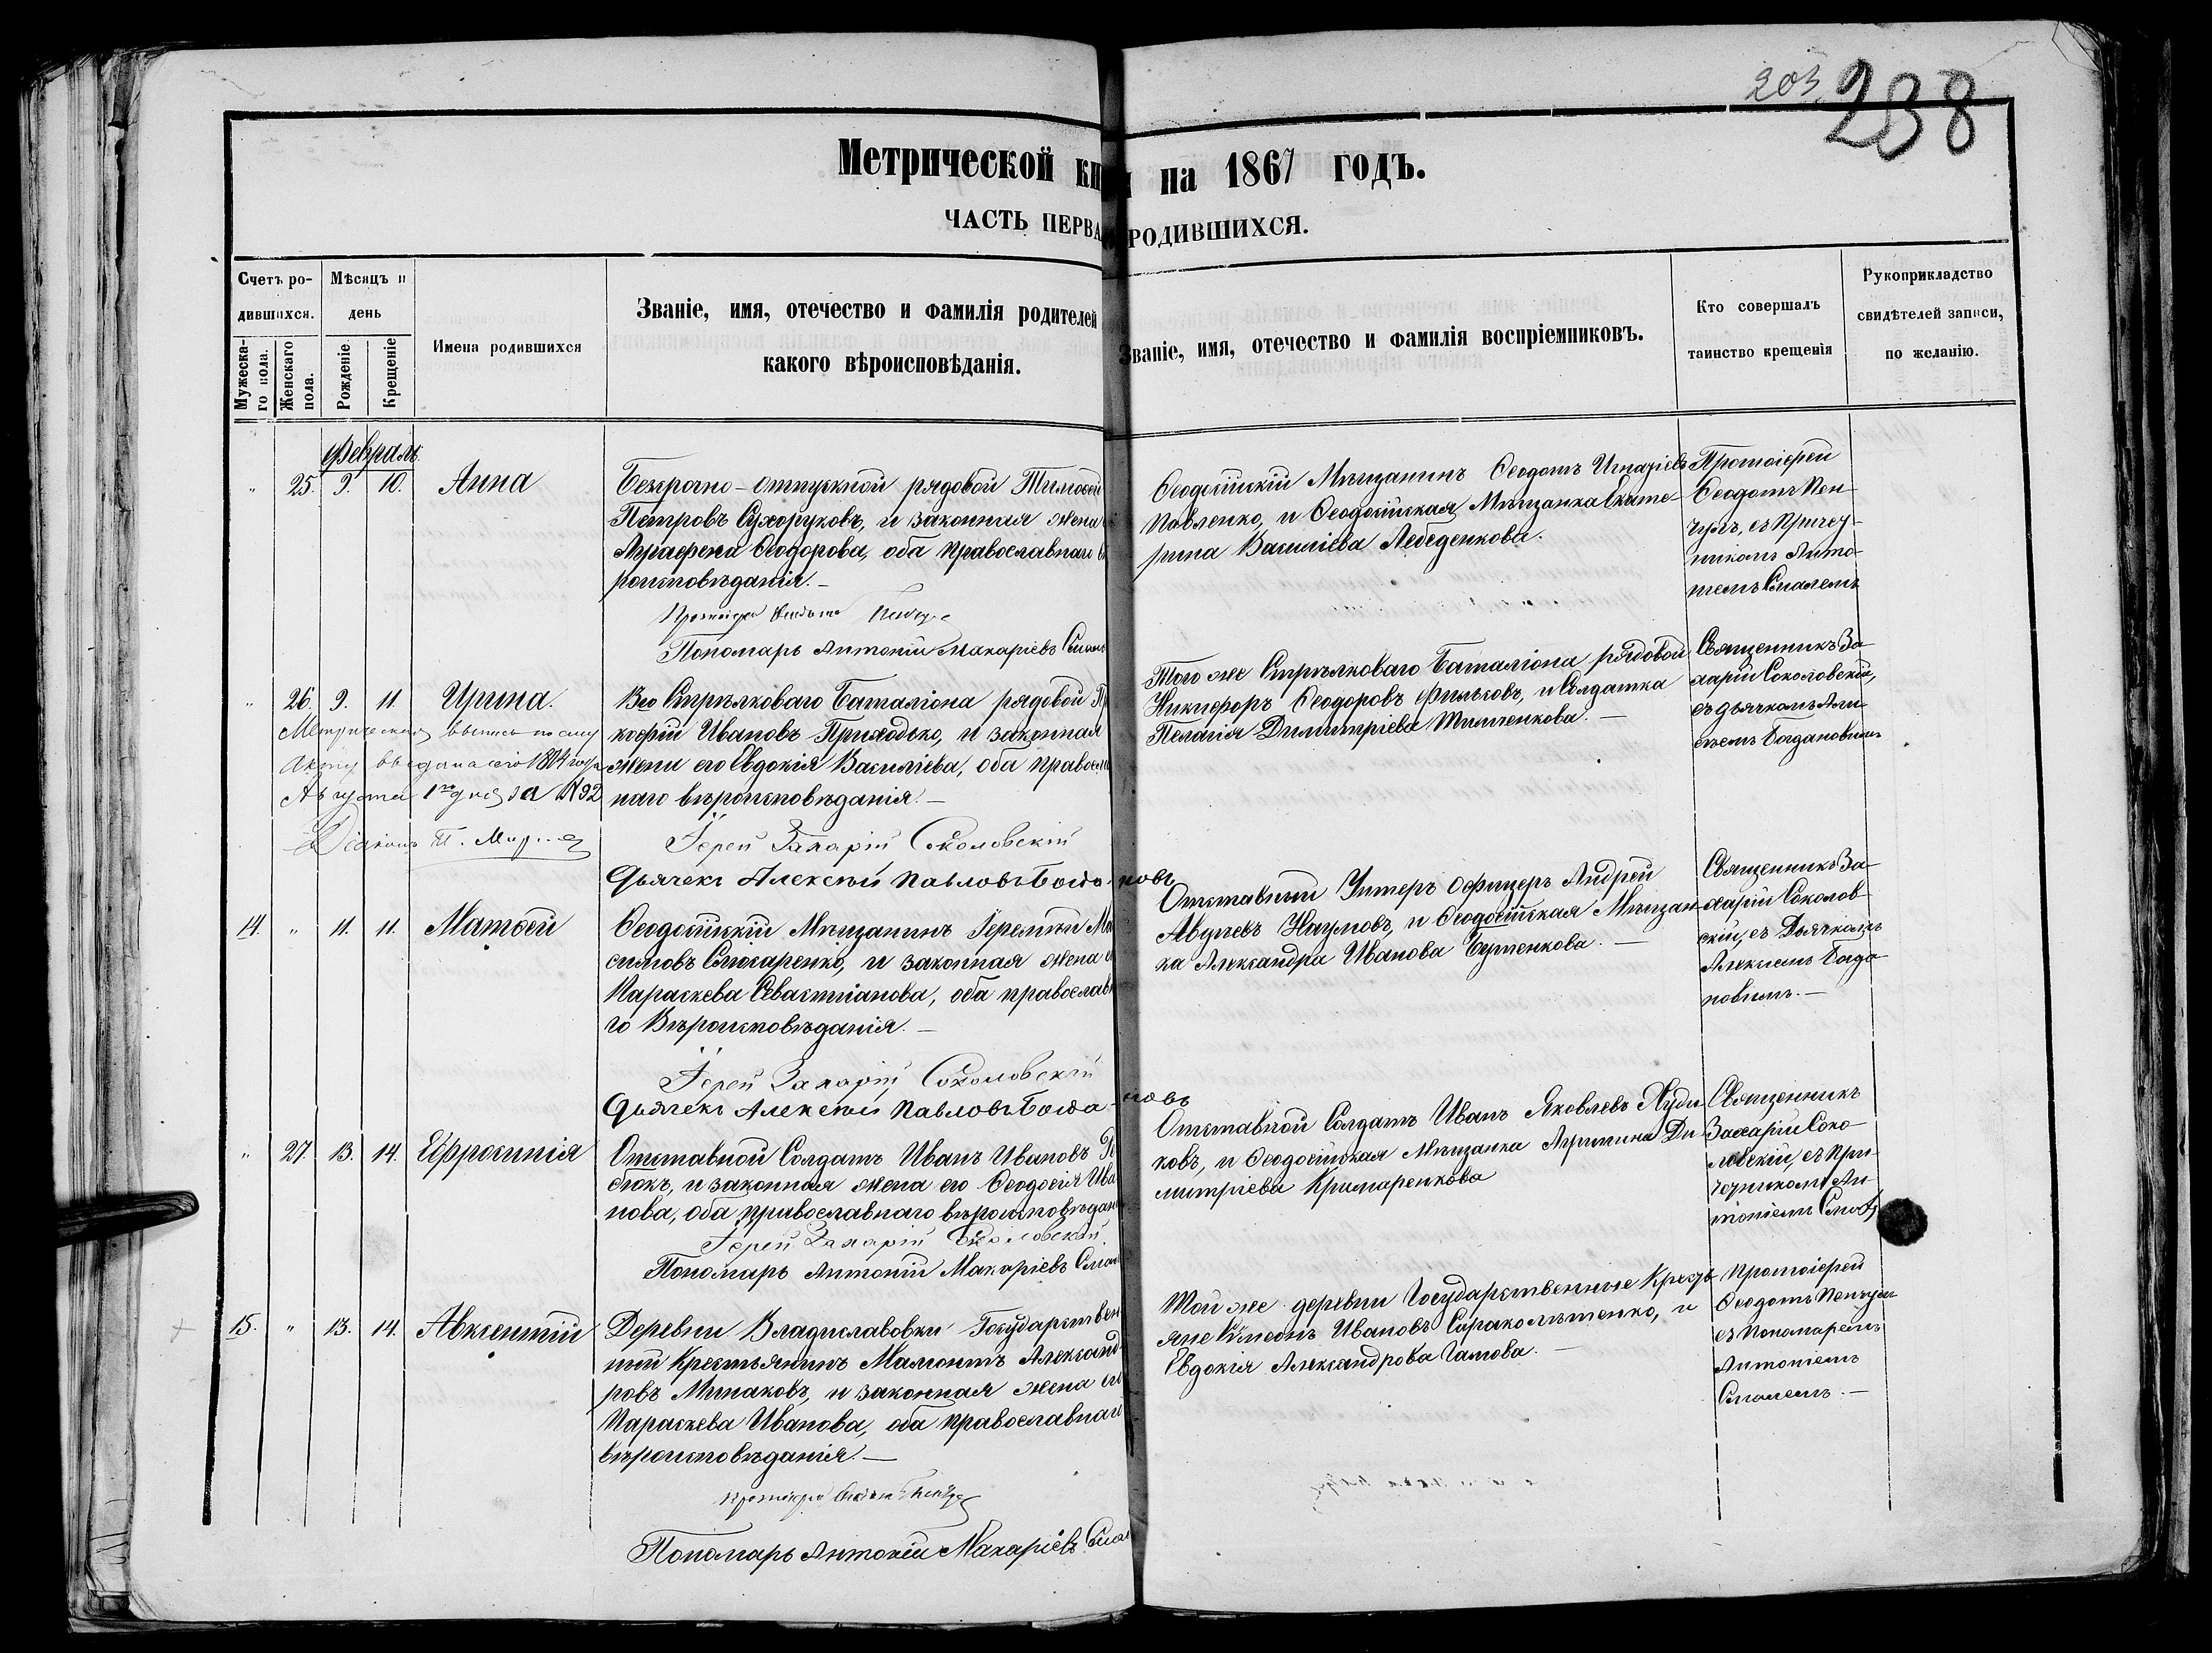 203.
238
Метрической кн и на 1867 годъ.
ЧАСТЬ ПЕРВА РОДИВШИХСЯ.
Счетъ ро-
дившихся.
Мужеска-
го пола.
Женскаго
пола.
Мѣсяцъ и
день
Рожденіе.
Крещеніе
Имена родившихся
Званіе, имя, отечество и фамилія родителей
какого вѣроисповѣданія.
Званіе, имя, отечество и фамилія воспріемниковъ.
Кто совершалъ
таинство крещенія
Рукоприкладство
свидѣтелей записи,
по желанію.
Февраль.
" 25. 9. 10. Анна
Безсрочно-отпускной рядовой Тимоѳей
Петровъ Сухоруковъ, и законная жена
Аграфена Ѳеодорова, оба православнаго
роисповѣданія.–
Протоіерей Ѳеодотъ
Пономарь Антоній Макаріевъ
Ѳеодосійскій Мѣщанинъ Ѳеодотъ Игнатіевъ
Павленко, и Ѳеодосійская Мѣщанка Екате-
рина Василіева Лебеденкова.
Протоіерей
Ѳеодотъ Пен-
чулъ, съ Причет-
никомъ Анто-
ніемъ Смалемъ
" 26. 9. 11. Ирина.
Метрическая выпись по сему
акту выдана сего 1874 года
Августа 1го дня за №92
Діаконъ П.
Вго Стрѣлковаго Баталіона рядовой Пр
кофій Ивановъ Приходько, и законная
жена его Евдокія Василіева, оба правосл
наго вѣроисповѣданія.–
Іерей Захарій Соколовскій
Дьячекъ Алексѣй Павловъ Богда-новъ
Того же Стрѣлковаго Баталіона рядовой
Никифоръ Ѳеодоровъ Фильковъ, и Солдатка
Пелагія Димитріева Тимченкова.–
Священникъ За-
харій Соколовскій,
съ дьячкомъ Але-
ксѣемъ Богдановымъ
14. " 11. 11. Матѳей
Ѳеодосійскій Мѣщанинъ Іеремѣй Ма
симовъ Слюсаренко, и законная жена е
Параскева Севастіанова, оба православн
го Вѣроисповѣданія.–
Іерей Захарій Соколовскій
Дьячекъ Алексѣй Павловъ Богда-новъ
Отставный Унтеръ Офицеръ Андрей
Авдѣевъ Наумовъ, и Ѳеодосійская Мѣщан-
ка Александра Иванова Бутенкова.–
Священникъ За-
харій Соколов-
скій, съ Дьячкомъ
Алексѣемъ Богда-
новымъ.–
" 27. 13. 14. Ефросинія
Отставной Солдатъ Иванъ Ивановъ
сюкъ, и законная жена его Ѳеодосія Ива
нова, оба православнаго вѣроисповѣдан
Іерей Захарій Соколовскій
Пономарь Антоній Макаріевъ Смал
Отставной Солдатъ Иванъ Яковлевъ Худи-
ковъ, и Ѳеодосійская Мѣщанка Агрипина Ди-
митріева Крамаренкова
Священникъ
Захарій Соко-
ловскій, съ При-
четникомъ Ан-
тоніемъ
15. " 13. 14. Авксентій
Деревни Владиславовки Государствен
ный Крестьянинъ Мамонтъ Александ-
ровъ Минаковъ, и законная жена его
Параскева Иванова, оба православнаго
вѣроисповѣданія.–
Протоіерей Ѳеодотъ
Пономарь Антоній Макаріевъ Смал
Той же деревни Государственные Кресть-
яне Симеонъ Ивановъ Сараколѣтенко, и
Евдокія Александрова Гамова.–
Протоіерей
Ѳеодотъ Пенчулъ
съ Пономаремъ
Антоніемъ
Смалемъ.–